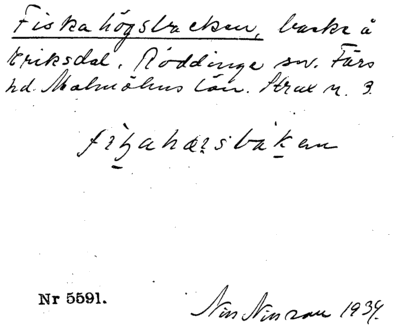 Fiskahögsbacken, backe å
Eriksdal, Röddinge sn. Färs
hd. Malmöhus län. Strax n. 3.
Nr 5591.
Nils Nilsson 1934.